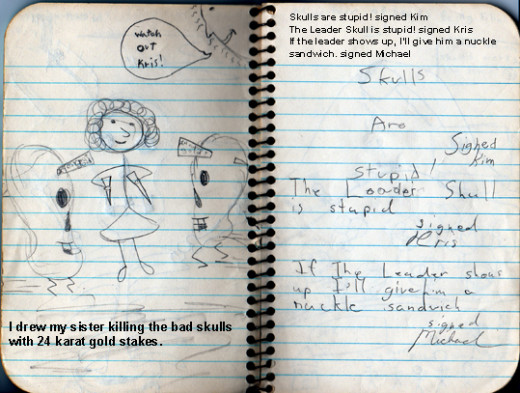 watch
out
Kris!
I drew my sister killing the bad skulls
with 24 karat gold stakes.
Skulls are stupid! signed Kim
The Leader Skull is stupid! signed Kris
If the leader shows up, I'll give him a nuckle
sandwich. signed Michael
Skulls
Are
Signed
Kim
stupid!
The Leader Skull
is stupid
signed
Kris
If The Leader shows
up I'll give him a
nuckle sandwich
signed
Michael